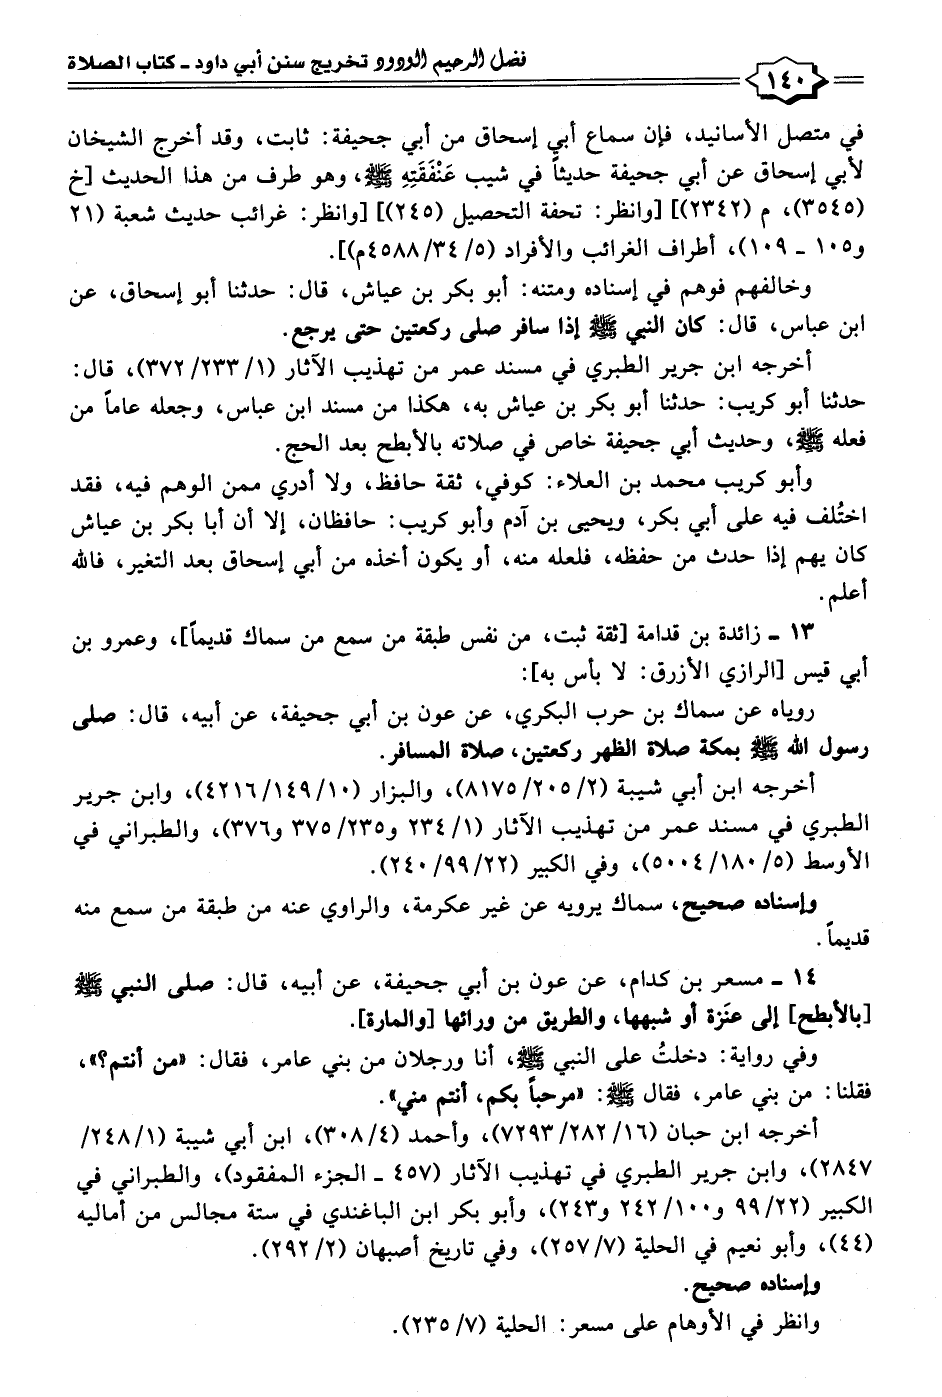 فضل الرحيم الودود تخريج سنن أبي داود - كتاب الصلاة
١٤٠
في متصل الأسانيد، فإن سماع أبي إسحاق من أبي جحيفة: ثابت، وقد أخرج الشيخان
لأبي إسحاق عن أبي جحيفة حديثاً في شيب عَنْفَقَتِهِ ﷺ، وهو طرف من هذا الحديث [خ
(٣٥٤٥)، م (٢٣٤٢)] [وانظر: تحفة التحصيل (٢٤٥)] [وانظر: غرائب حديث شعبة (٢١
و١٠٥ - ١٠٩)، أطراف الغرائب والأفراد (٥/ ٣٤/ ٤٥٨٨م)].
وخالفهم فوهم في إسناده ومتنه: أبو بكر بن عياش، قال: حدثنا أبو إسحاق، عن
ابن عباس، قال: كان النبي ﷺ إذا سافر صلى ركعتين حتى يرجع.
أخرجه ابن جرير الطبري في مسند عمر من تهذيب الآثار (١/ ٢٣٣/ ٣٧٢)، قال:
حدثنا أبو كريب: حدثنا أبو بكر بن عياش به، هكذا من مسند ابن عباس، وجعله عاماً من
فعله ﷺ، وحديث أبي جحيفة خاص في صلاته بالأبطح بعد الحج.
وأبو كريب محمد بن العلاء: كوفي، ثقة حافظ، ولا أدري ممن الوهم فيه، فقد
اختُلف فيه على أبي بكر، ويحيى بن آدم وأبو كريب: حافظان، إلا أن أبا بكر بن عياش
كان يهم إذا حدث من حفظه، فلعله منه، أو يكون أخذه من أبي إسحاق بعد التغير، فالله
أعلم.
١٣ - زائدة بن قدامة [ثقة ثبت، من نفس طبقة من سمع من سماك قديماً]، وعمرو بن
أبي قيس [الرازي الأزرق: لا بأس به]:
روياه عن سماك بن حرب البكري، عن عون بن أبي جحيفة، عن أبيه، قال: صلى
رسول الله ﷺ بمكة صلاة الظهر ركعتين، صلاة المسافر.
أخرجه ابن أبي شيبة (٢/ ٢٠٥/ ٨١٧٥)، والبزار (١٠/ ١٤٩/ ٤٢١٦)، وابن جرير
الطبري في مسند عمر من تهذيب الآثار (١/ ٢٣٤ و٢٣٥/ ٣٧٥ و٣٧٦)، والطبراني في
الأوسط (٥/ ١٨٠/ ٥٠٠٤)، وفي الكبير (٢٢/ ٩٩/ ٢٤٠).
وإسناده صحيح، سماك يرويه عن غير عكرمة، والراوي عنه من طبقة من سمع منه
قديماً.
١٤ - مسعر بن كدام، عن عون بن أبي جحيفة، عن أبيه، قال: صلى النبي ﷺ
[بالأبطح] إلى عنَزة أو شبهها، والطريق من ورائها [والمارة].
وفي رواية: دخلتُ على النبي ﷺ، أنا ورجلان من بني عامر، فقال: «من أنتم؟»،
فقلنا: من بني عامر، فقال ﷺ: «مرحباً بكم، أنتم مني».
أخرجه ابن حبان (١٦/ ٢٨٢/ ٧٢٩٣)، وأحمد (٤/ ٣٠٨)، ابن أبي شيبة (١/ ٢٤٨/
٢٨٤٧)، وابن جرير الطبري في تهذيب الآثار (٤٥٧ - الجزء المفقود)، والطبراني في
الكبير (٢٢/ ٩٩ و١٠٠/ ٢٤٢ و٢٤٣)، وأبو بكر ابن الباغندي في ستة مجالس من أماليه
(٤٤)، وأبو نعيم في الحلية (٧/ ٢٥٧)، وفي تاريخ أصبهان (٢/ ٢٩٢).
وإسناده صحيح.
وانظر في الأوهام على مسعر: الحلية (٧/ ٢٣٥).